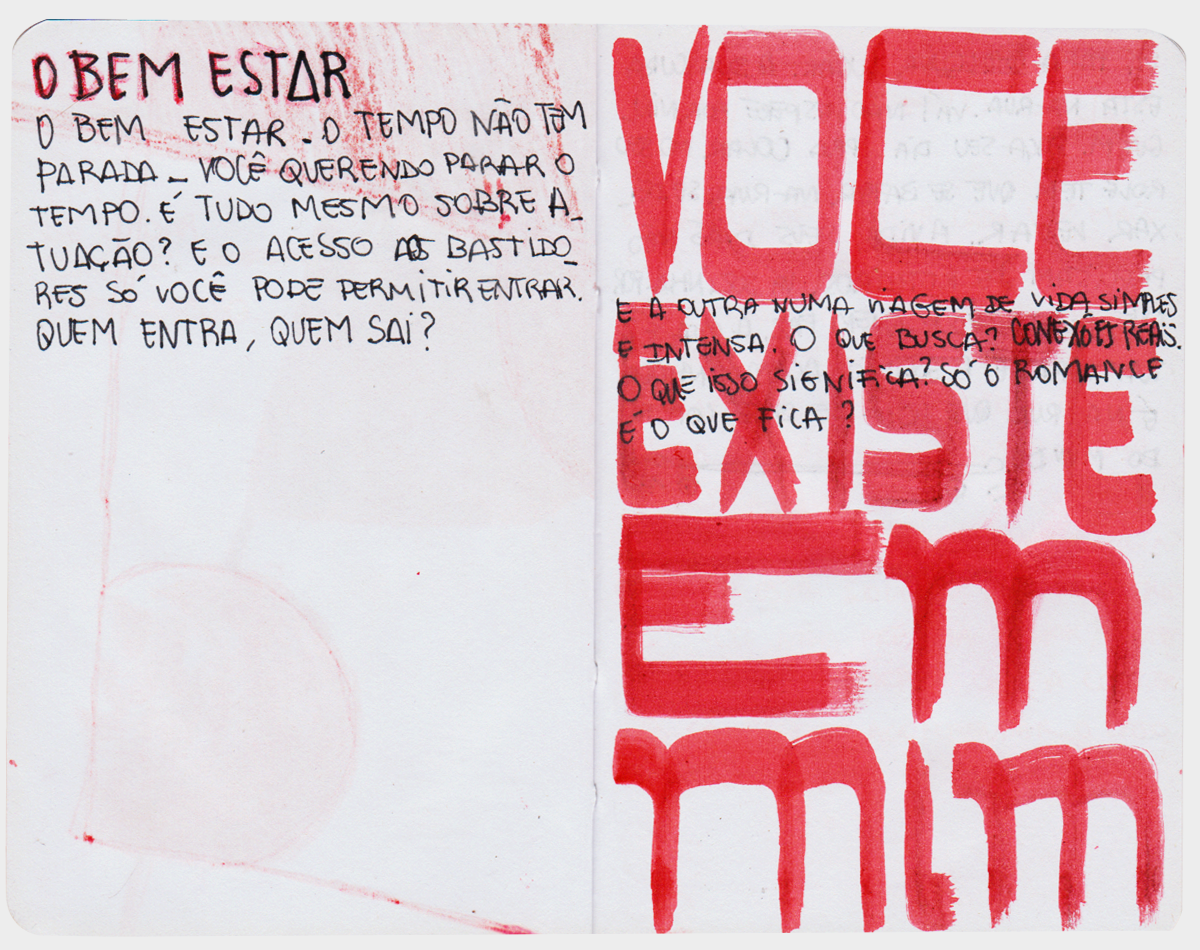 O BEM ESTAR
O BEM ESTAR - O TEMPO NÃO TEM
PARADA - VOCÊ QUERENDO PARAR O
TEMPO. É TUDO MESMO SOBRE A-
TUAÇÃO? E O ACESSO AOS BASTIDO-
RES SÓ VOCÊ PODE PERMITIR ENTRAR.
QUEM ENTRA, QUEM SAI?
VOCE
E A OUTRA NUMA VIAGEM DE VIDA SIMPLES
E INTENSA. O QUE BUSCA? CONEXÕES REAIS.
O QUE ISSO SIGNIFICA? SÓ O ROMANCE
É O QUE FICA?
EXISTE
Em
mim